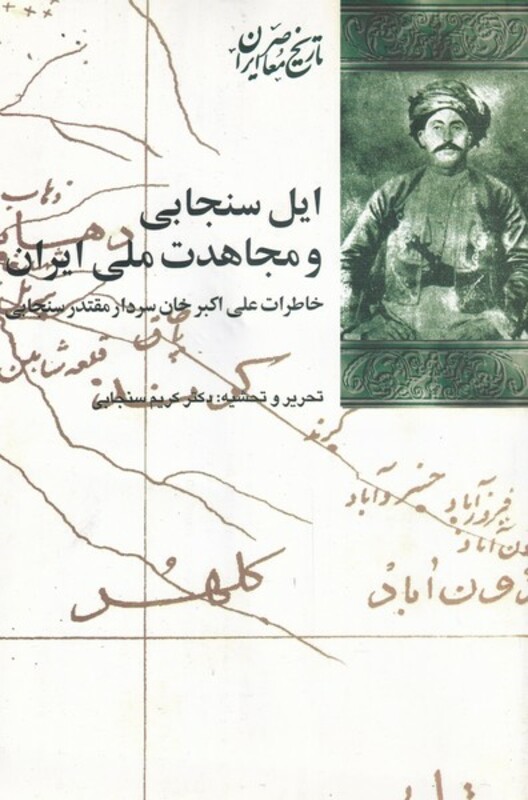 تاریخ معاصر ایران
ایل سنجابی
و مجاهدت ملی ایران
خاطرات علی اکبر خان سردار مقتدر سنجابی
تحریر و تحشیه: دکتر کریم سنجابی
ذهاب
قلعه شاهین
کرند
خسروآباد
فیروزآباد
کلهر